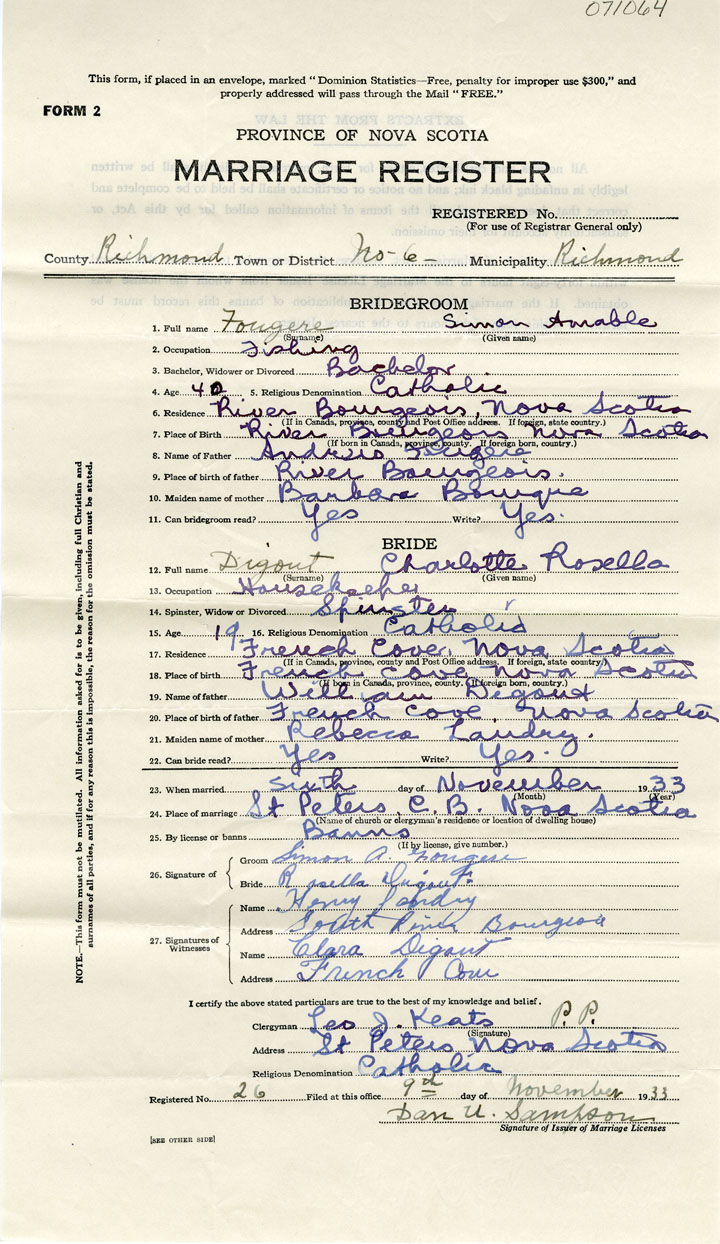 071064
This form, if placed in an envelope, marked "Dominion Statistics—Free, penalty for improper use $300," and
properly addressed will pass through the Mail "FREE."
FORM 2
PROVINCE OF NOVA SCOTIA
MARRIAGE REGISTER
REGISTERED No.
(For use of Registrar General only)
County Richmond Town or District No-6- Municipality Richmond
BRIDEGROOM
1. Full name Fougere Simon Amable
(Surname) (Given name)
2. Occupation Fishing
3. Bachelor, Widower or Divorced Bachelor
4. Age 40 5. Religious Denomination Catholic
6. Residence River Bourgeois, Nova Scotia
(If in Canada, province, county and Post Office address. If foreign, state country.)
7. Place of Birth River Bourgeois Nova Scotia
(If born in Canada, province, county. If foreign born, country.)
8. Name of Father Fougere
9. Place of birth of father River Bourgeois.
10. Maiden name of mother Barbara Bourque
11. Can bridegroom read? Yes Write? Yes.
BRIDE
12. Full name Digout Charlotte Rosella
(Surname) (Given name)
13. Occupation Housekeeper
14. Spinster, Widow or Divorced Spinster
15. Age 19 16. Religious Denomination Catholic
17. Residence French Cove, Nova Scotia
(If in Canada, province, county and Post Office address. If foreign, state country.)
18. Place of birth French Cove Nova Scotia
(If born in Canada, province, county. If foreign born, country.)
19. Name of father William Digout
20. Place of birth of father French Cove, Nova Scotia
21. Maiden name of mother Rebecca Landry.
22. Can bride read? Yes Write? Yes.
23. When married sixth day of November 1933
(Month) (Year)
24. Place of marriage St Peters, C. B. Nova Scotia
(Name of church or clergyman's residence or location of dwelling house)
25. By license or banns Banns
(If by license, give number.)
26. Signature of
Groom Simon A. Fougere
Bride Rosella Digout
27. Signatures of Witnesses
Name Henry Landry
Address South River Bourgeois
Name Clara Digout
Address French Cove
I certify the above stated particulars are true to the best of my knowledge and belief.
Clergyman Leo J. Keats P. P.
(Signature)
Address St Peters, Nova Scotia
Religious Denomination Catholic
Registered No. 26 Filed at this office 9th day of November 1933
Dan U. Sampson
Signature of Issuer of Marriage Licenses
[SEE OTHER SIDE]
NOTE.—This form must not be mutilated. All information asked for is to be given, including full Christian and
surnames of all parties, and if for any reason this is impossible, the reason for the omission must be stated.